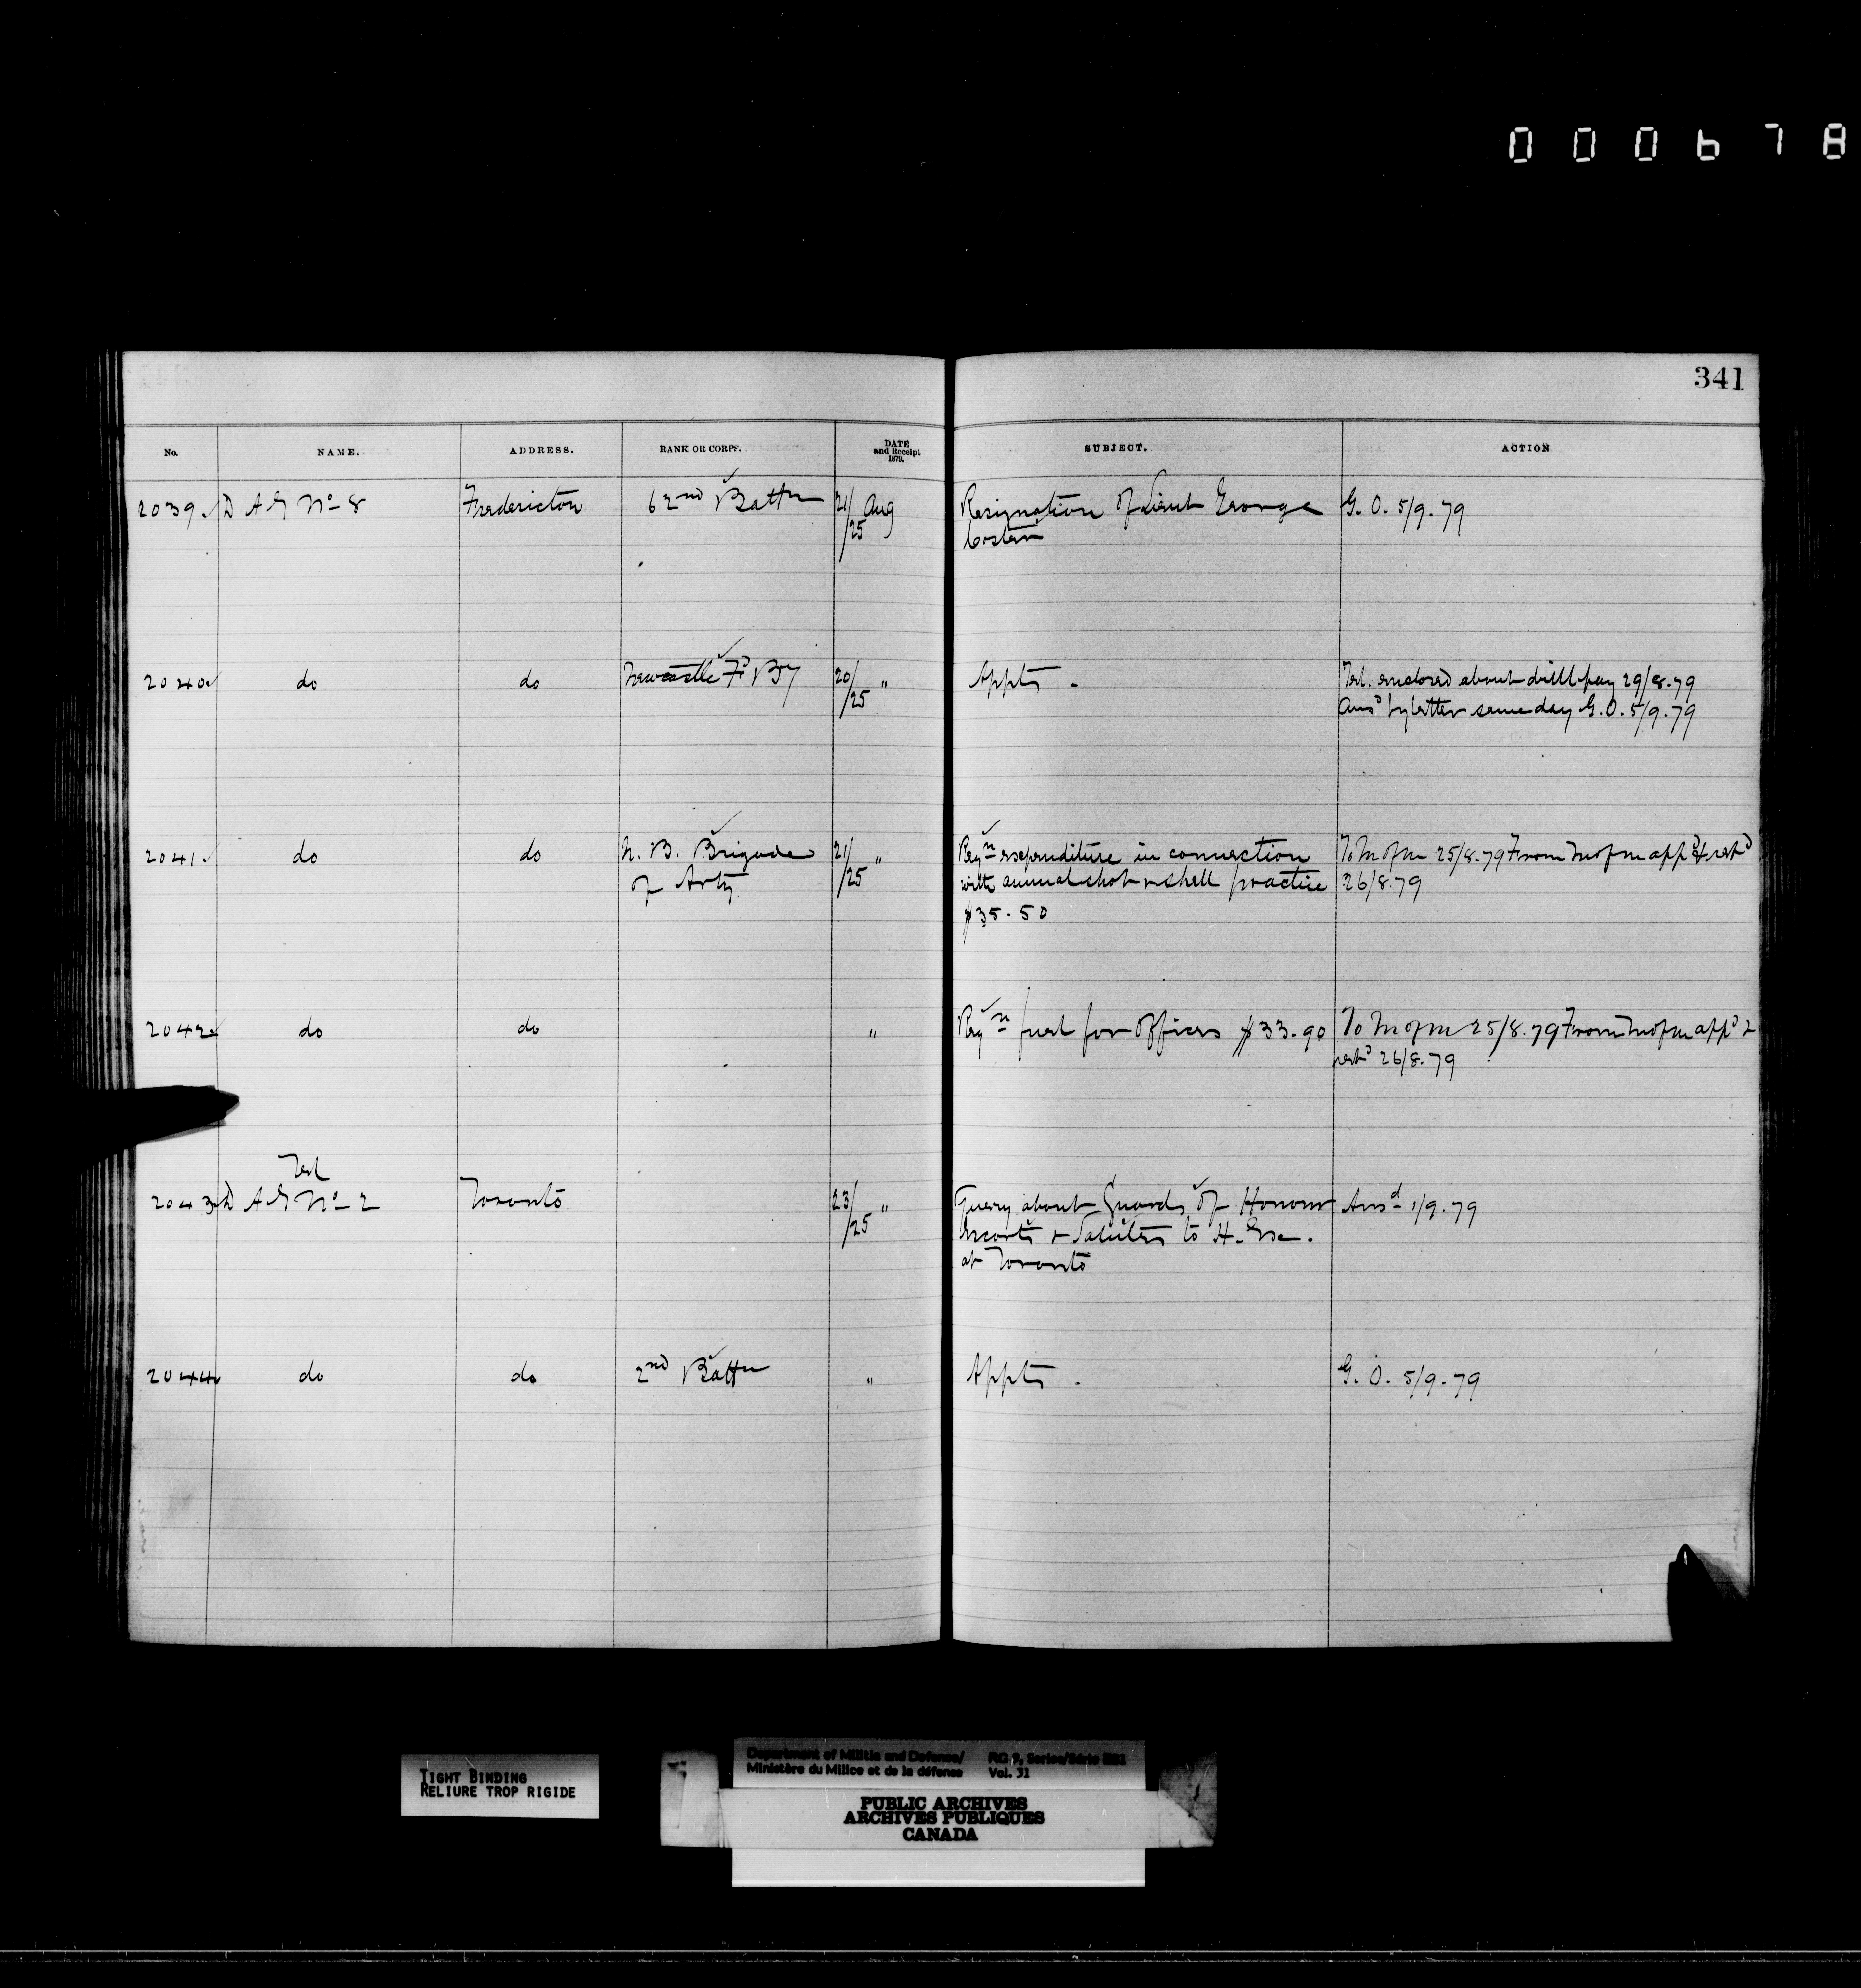 000678
341
No. NAME. ADDRESS. RANK OR CORPS. DATE and Receipt 1879. SUBJECT. ACTION
2039 D A G No 8 Fredericton 62nd Battn 21/25 Aug Resignation of Lieut George G. O. 5/9.79
Coster
2040 do do Newcastle Fd By 20/25 " Appts. Tel. enclosed about drill pay 29/8.79
Ansd by letter same day G.O. 5/9.79
2041 do do N. B. Brigade 21/25 " Reqn expenditure in connection To M of M 25/8.79 From M of M appd & retd
of Arty with annual shot & shell practice 26/8.79
$35.50
2042 do do " Reqn fuel for Offices $33.90 To M of M 25/8.79 From M of M appd &
retd 26/8.79
Tel
2043 D A G No 2 Toronto 23/25 " Query about Guards of Honour Ansd 1/9.79
Escorts & Salutes to H. Exc.
at Toronto
2044 do do 2nd Battn " Appts. G. O. 5/9.79
TIGHT BINDING
RELIURE TROP RIGIDE
Department of Militia and Defence/ RG 9, Series/Série
Ministère du Milice et de la défense Vol. 31
PUBLIC ARCHIVES
ARCHIVES PUBLIQUES
CANADA